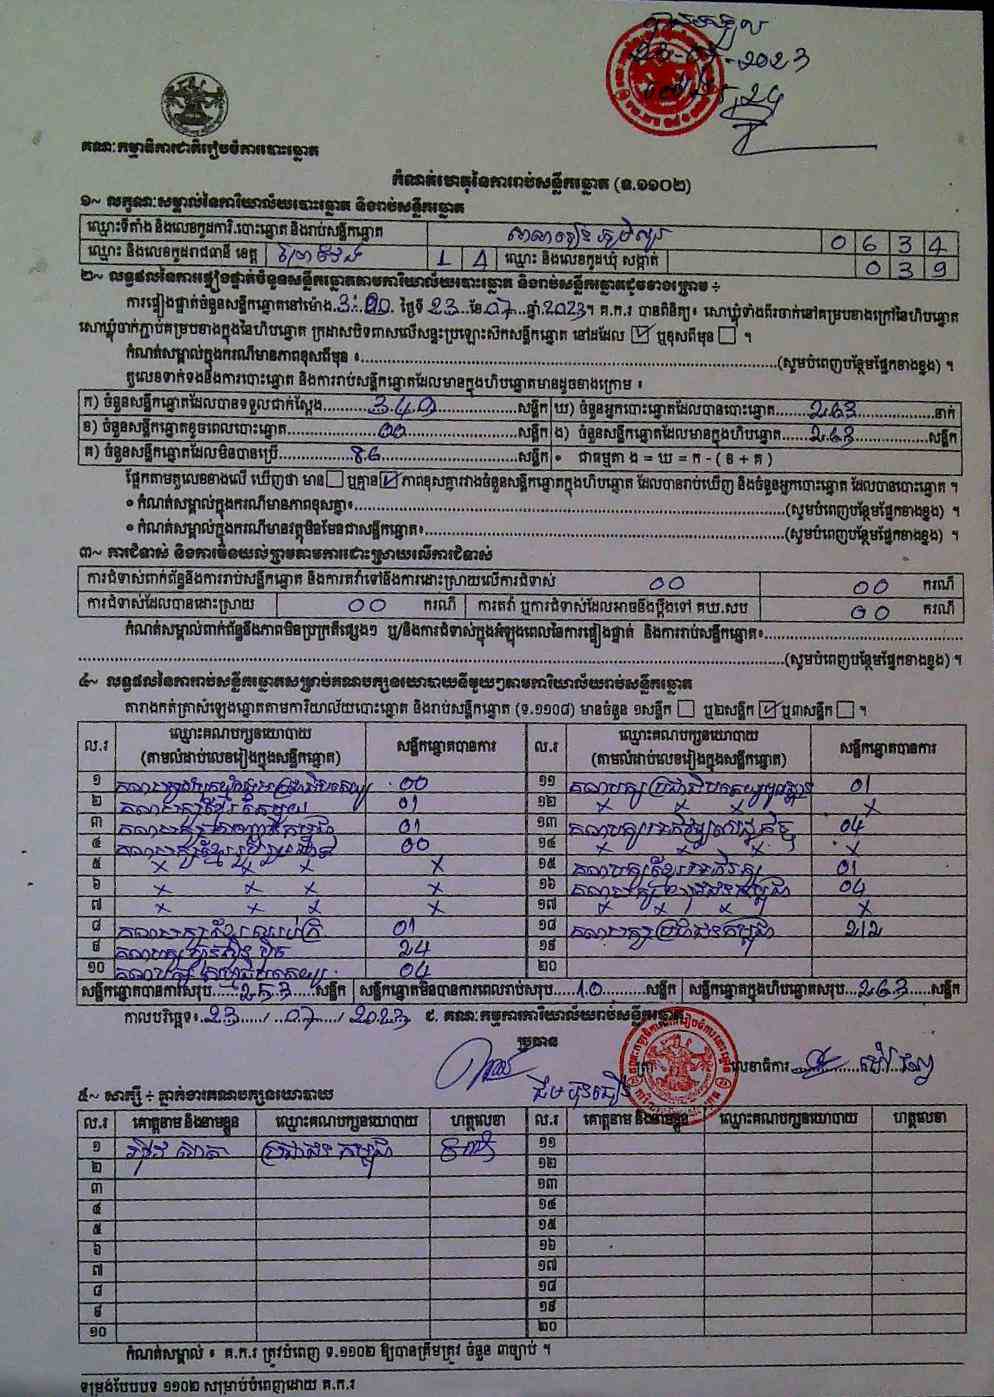 23-07-2023
គណៈកម្មាធិការជាតិរៀបចំការបោះឆ្នោត
កំណត់ហេតុនៃការរាប់សន្លឹកឆ្នោត (ទ.១១០២)
១~ លក្ខណៈសម្គាល់នៃការិយាល័យបោះឆ្នោត និងរាប់សន្លឹកឆ្នោត
ឈ្មោះទីតាំង និងលេខកូដការិ.បោះឆ្នោត និងរាប់សន្លឹកឆ្នោត 0 6 3 4
ឈ្មោះ និងលេខកូដរាជធានី ខេត្ត ព្រៃវែង 1 4 ឈ្មោះ និងលេខកូដឃុំ សង្កាត់ 0 3 9
២~ លទ្ធផលនៃការផ្ទៀងផ្ទាត់ចំនួនសន្លឹកឆ្នោតតាមការិយាល័យបោះឆ្នោត និងរាប់សន្លឹកឆ្នោតដូចខាងក្រោម ÷
ការផ្ទៀងផ្ទាត់ចំនួនសន្លឹកឆ្នោតនៅម៉ោង 3:00 ថ្ងៃទី 23 ខែ 07 ឆ្នាំ 2023 ។ គ.ក.រ បានពិនិត្យ៖ សោឃ្មុំទាំងពីរចាក់នៅគម្របខាងក្រៅនៃហិបឆ្នោត
សោឃ្មុំចាក់ភ្ជាប់គម្របខាងក្នុងនៃហិបឆ្នោត ក្រដាសបិទពាសលើសន្ទះប្រឡោះស៊កសន្លឹកឆ្នោត នៅដដែល ☑ ឬខុសពីមុន ☐ ។
កំណត់សម្គាល់ក្នុងករណីមានភាពខុសពីមុន ៖ (សូមបំពេញបន្ថែមផ្នែកខាងខ្នង) ។
តួលេខទាក់ទងនឹងការបោះឆ្នោត និងការរាប់សន្លឹកឆ្នោតដែលមានក្នុងហិបឆ្នោតមានដូចខាងក្រោម ៖
ក) ចំនួនសន្លឹកឆ្នោតដែលបានទទួលជាក់ស្តែង 349 សន្លឹក ឃ) ចំនួនអ្នកបោះឆ្នោតដែលបានបោះឆ្នោត 263 នាក់
ខ) ចំនួនសន្លឹកឆ្នោតខូចពេលបោះឆ្នោត 00 សន្លឹក ង) ចំនួនសន្លឹកឆ្នោតដែលមានក្នុងហិបឆ្នោត 263 សន្លឹក
គ) ចំនួនសន្លឹកឆ្នោតដែលមិនបានប្រើ 86 សន្លឹក • ជាធម្មតា ង = ឃ = ក - ( ខ + គ )
ផ្អែកតាមតួលេខខាងលើ ឃើញថា មាន ☐ ឬគ្មាន ☑ ភាពខុសគ្នារវាងចំនួនសន្លឹកឆ្នោតក្នុងហិបឆ្នោត ដែលបានរាប់ឃើញ និងចំនួនអ្នកបោះឆ្នោត ដែលបានបោះឆ្នោត ។
• កំណត់សម្គាល់ក្នុងករណីមានភាពខុសគ្នា៖ (សូមបំពេញបន្ថែមផ្នែកខាងខ្នង) ។
• កំណត់សម្គាល់ក្នុងករណីមានវត្ថុមិនមែនជាសន្លឹកឆ្នោត៖ (សូមបំពេញបន្ថែមផ្នែកខាងខ្នង) ។
៣~ ការជំទាស់ និងការមិនយល់ព្រមតាមការដោះស្រាយលើការជំទាស់
ការជំទាស់ពាក់ព័ន្ធនឹងការរាប់សន្លឹកឆ្នោត និងការតវ៉ាទៅនឹងការដោះស្រាយលើការជំទាស់ 00 00 ករណី
ការជំទាស់ដែលបានដោះស្រាយ 00 ករណី ការតវ៉ា ឬការជំទាស់ដែលអាចនឹងប្តឹងទៅ គឃ.សប 00 ករណី
កំណត់សម្គាល់ពាក់ព័ន្ធនឹងភាពមិនប្រក្រតីផ្សេងៗ ឬ/និងការជំទាស់ក្នុងអំឡុងពេលនៃការផ្ទៀងផ្ទាត់ និងការរាប់សន្លឹកឆ្នោត៖
(សូមបំពេញបន្ថែមផ្នែកខាងខ្នង) ។
៤~ លទ្ធផលនៃការរាប់សន្លឹកឆ្នោតសម្រាប់គណបក្សនយោបាយនីមួយៗតាមការិយាល័យរាប់សន្លឹកឆ្នោត
តារាងកត់ត្រាសំឡេងឆ្នោតតាមការិយាល័យបោះឆ្នោត និងរាប់សន្លឹកឆ្នោត (ទ.១១០៨) មានចំនួន ១សន្លឹក ☐ ឬ២សន្លឹក ☑ ឬ៣សន្លឹក ☐ ។
ល.រ ឈ្មោះគណបក្សនយោបាយ (តាមលំដាប់លេខរៀងក្នុងសន្លឹកឆ្នោត) សន្លឹកឆ្នោតបានការ ល.រ ឈ្មោះគណបក្សនយោបាយ (តាមលំដាប់លេខរៀងក្នុងសន្លឹកឆ្នោត) សន្លឹកឆ្នោតបានការ
១ 00 ១១ 01
២ គណបក្សខ្មែរតែមួយ 01 ១២ x x x x
៣ 01 ១៣ 04
៤ 00 ១៤ x x x x
៥ x x x x ១៥ គណបក្សខ្មែរអភិរក្ស 01
៦ x x x x ១៦ 04
៧ x x x x ១៧ x x x x
៨ 01 ១៨ គណបក្សប្រជាជនកម្ពុជា 212
៩ គណបក្សហ៊្វុនស៊ិនប៉ិច 24 ១៩
១០ 04 ២០
សន្លឹកឆ្នោតបានការសរុប 253 សន្លឹក សន្លឹកឆ្នោតមិនបានការពេលរាប់សរុប 10 សន្លឹក សន្លឹកឆ្នោតក្នុងហិបឆ្នោតសរុប 263 សន្លឹក
កាលបរិច្ឆេទ៖ 23 / 07 / 2023 ៩. គណៈកម្មការការិយាល័យរាប់សន្លឹកឆ្នោត
ប្រធាន
លេខាធិការ
៥~ សាក្សី ÷ ភ្នាក់ងារគណបក្សនយោបាយ
ល.រ គោត្តនាម និងនាមខ្លួន ឈ្មោះគណបក្សនយោបាយ ហត្ថលេខា ល.រ គោត្តនាម និងនាមខ្លួន ឈ្មោះគណបក្សនយោបាយ ហត្ថលេខា
១ ប្រជាជនកម្ពុជា ១១
២ ១២
៣ ១៣
៤ ១៤
៥ ១៥
៦ ១៦
៧ ១៧
៨ ១៨
៩ ១៩
១០ ២០
កំណត់សម្គាល់ ៖ គ.ក.រ ត្រូវបំពេញ ទ.១១០២ ឱ្យបានត្រឹមត្រូវ ចំនួន ៣ច្បាប់ ។
ទម្រង់បែបបទ ១១០២ សម្រាប់បំពេញដោយ គ.ក.រ